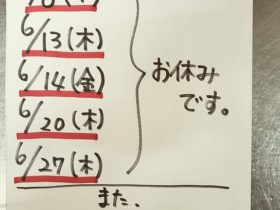 6/13(木)
6/14(金)
6/20(木)
6/27(木)
お休み
です。
また、